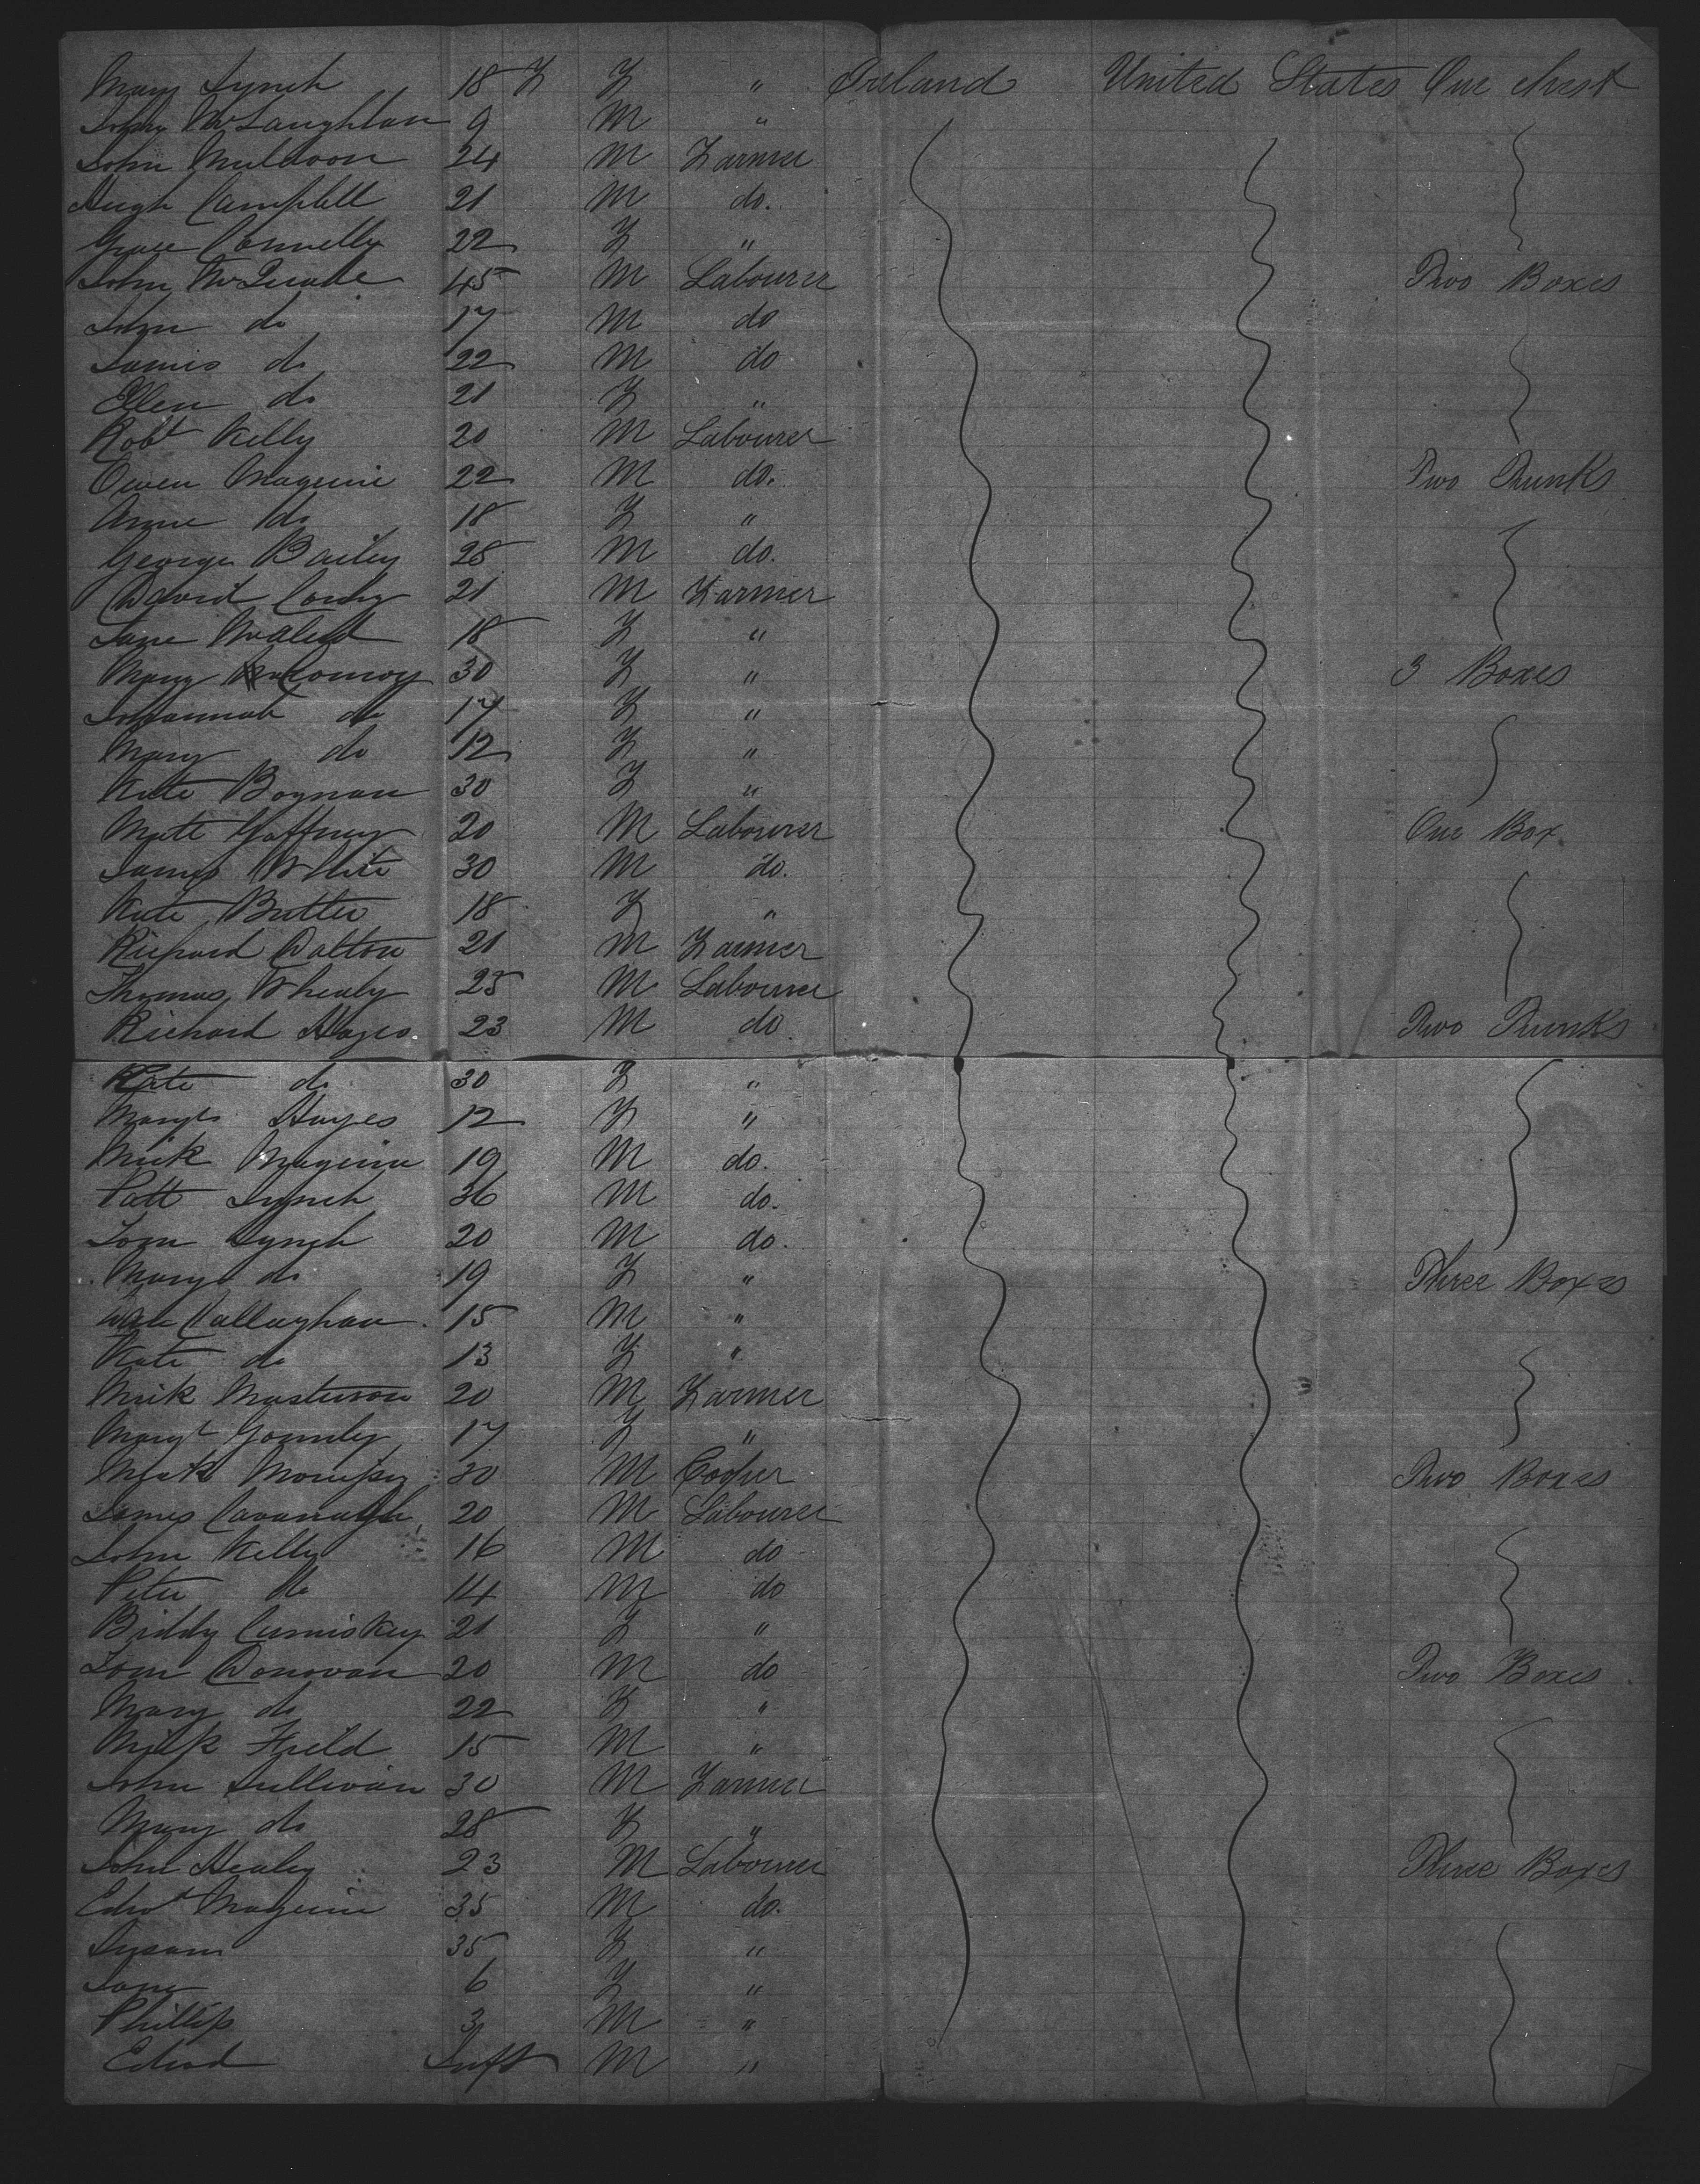 Mary Lynch 18 F F " Ireland United States One chest
John McLaughlan 9 M "
John Muldoon 24 M Farmer
Hugh Campbell 21 M do.
Grace Connelly 22 F "
John McQuade 45 M Labourer Two Boxes
John do 17 M do
James do 22 M do
Ellen do 21 F "
Robt Kelly 20 M Labourer
Owen Maguire 22 M do. Two Trunks
Anne do 18 F "
George Bailey 28 M do.
David 21 M Farmer
Jane 18 F "
Mary Conroy 30 F " 3 Boxes
Johannah do 17 F "
Mary do 12 F "
Kate Boynan 30 F "
Matt Gaffney 20 M Labourer One Box.
James White 30 M do.
Kate Butler 18 F "
Richard Dalton 21 M Farmer
Thomas Whealy 25 M Labourer
Richard Hayes 23 M do Two Trunks
Kate do 30 F "
Margt Hayes 12 F "
Mick Maguire 19 M do.
Patt Lynch 36 M do.
Tom Lynch 20 M do.
Margt do 19 F " Three Boxes
Callaghan 15 M "
Kate do 13 F "
Mick Masterson 20 M Farmer
Margt Gormley 17 F "
30 M Cooper Two Boxes
James Cavanagh 20 M Labourer
John Kelly 16 M do
Peter do 14 M do
Biddy Cumiskey 21 F "
Tom Donovan 20 M do Two Boxes
Mary do 22 F "
Mick Field 15 M "
John Sullivan 30 M Farmer
Mary do 28 F "
John Healey 23 M Labourer Three Boxes
Edwd Maguire 35 M do.
Susan 35 F "
Jane 6 F "
Phillip 3 M "
Edwd Inft M "